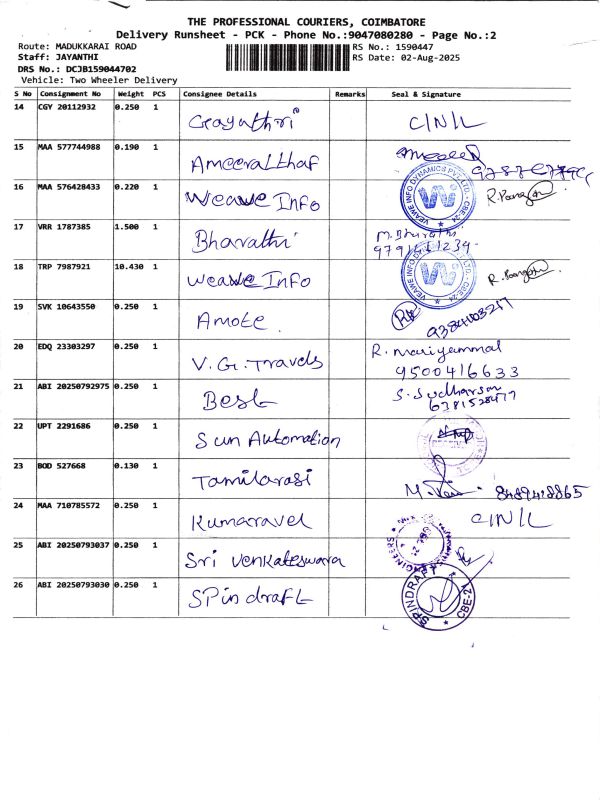 THE PROFESSIONAL COURIERS, COIMBATORE
Delivery Runsheet - PCK - Phone No.:9047080280 - Page No.:2
Route: MADUKKARAI ROAD
RS No.: 1590447
Staff: JAYANTHI
RS Date: 02-Aug-2025
DRS No.: DCJB159044702
Vehicle: Two Wheeler Delivery
S No Consignment No Weight PCS Consignee Details Remarks Seal & Signature
14 CGY 20112932 0.250 1 Gayathri C/N/L
15 MAA 577744988 0.190 1 Ameeralthaf
16 MAA 576428433 0.220 1 Weawe Info VEAWE INFO DYNAMICS PVT LTD. CBE-24
17 VRR 1787385 1.500 1 Bharathi M. Bharathi
18 TRP 7987921 10.430 1 Weawe Info VEAWE INFO DYNAMICS PVT LTD. CBE-24
19 SVK 10643550 0.250 1 Amote 9384403217
20 EDQ 23303297 0.250 1 V.G. Travels R. Mariyammal
9500416633
21 ABI 20250792975 0.250 1 Best S. Sudharsan
6381528477
22 UPT 2291686 0.250 1 Sun Automation
23 BOD 527668 0.130 1 Tamilarasi 8489418865
24 MAA 710785572 0.250 1 Kumaravel C/N/L
25 ABI 20250793037 0.250 1 Sri Venkateswara
26 ABI 20250793030 0.250 1 Spindraft SPINDRAFT CBE-21